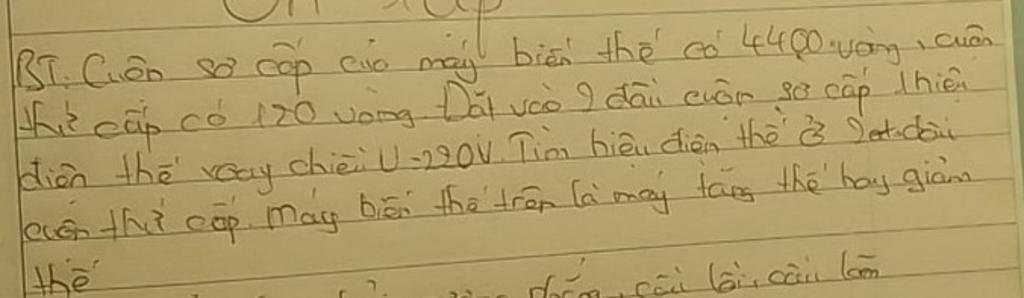 Ôn tập
BT. Cuộn sơ cấp của máy biến thế có 4400 vòng, cuộn
thứ cấp có 120 vòng. Đặt vào 2 đầu cuộn sơ cấp 1 hiệu
điện thế xoay chiều U=220V. Tìm hiệu điện thế ở 2 đầu
cuộn thứ cấp. Máy biến thế trên là máy tăng thế hay giảm
thế